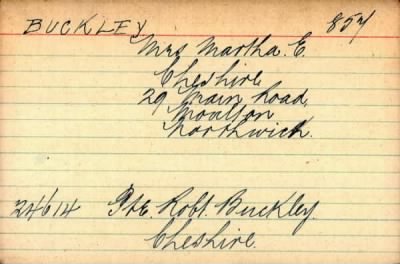 BUCKLEY 857
Mrs Martha. E.
Cheshire
29 Main Road,
Moulton
Northwich.
24614 Pte. Robt. Buckley.
Cheshire.